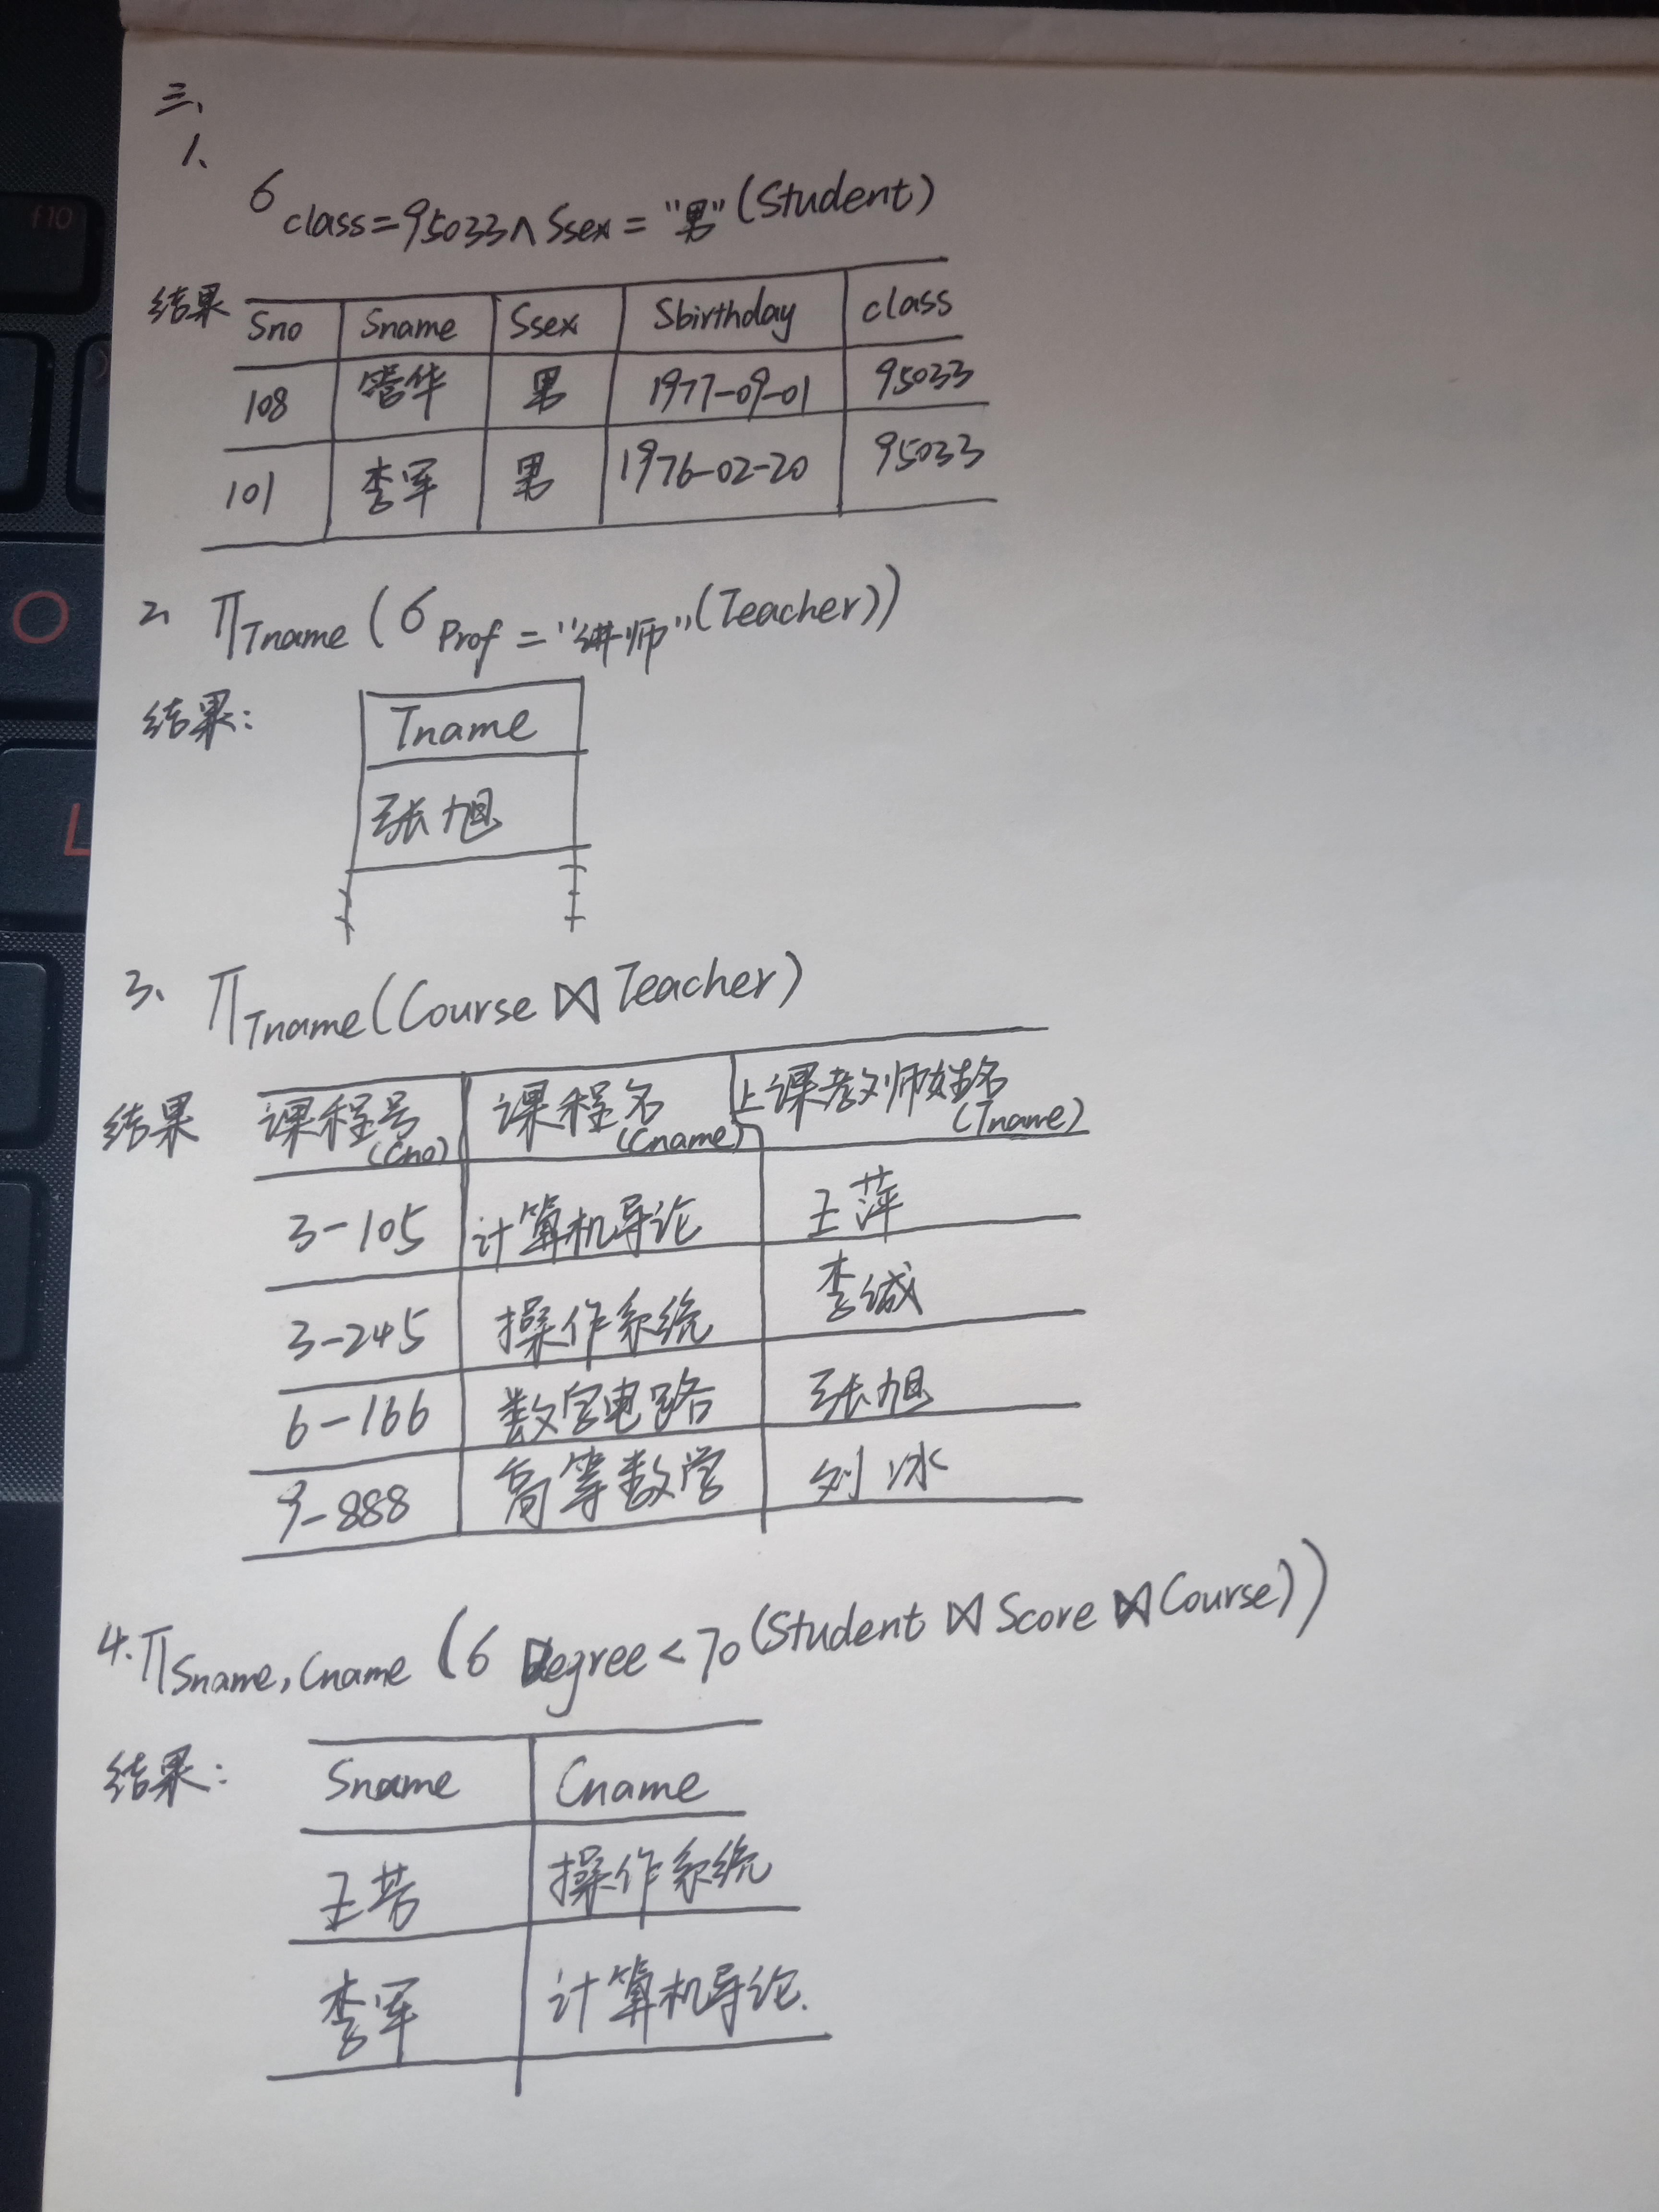 f10
O
L
三、
1、
σ class=95033∧Ssex="男"(Student)
结果
Sno Sname Ssex Sbirthday class
108 曾华 男 1977-09-01 95033
101 李军 男 1976-02-20 95033
2、 ΠTname(σ Prof="讲师"(Teacher))
结果:
Tname
张旭
3、 ΠTname(Course⋈Teacher)
结果 课程号(Cno) 课程名(Cname) 上课教师姓名(Tname)
3-105 计算机导论 王萍
3-245 操作系统 李诚
6-166 数字电路 张旭
9-888 高等数学 刘冰
4.ΠSname,Cname(σ Degree<70(Student⋈Score⋈Course))
结果:
Sname Cname
王芳 操作系统
李军 计算机导论.